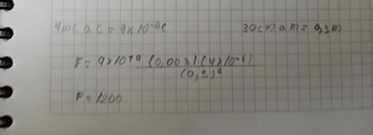 4mc a C = 4x10^-6 C 30cm a m = 0,3m
F = 9x10^+9 (0,003)(4x10^-6) / (0,3)²
F = 1200